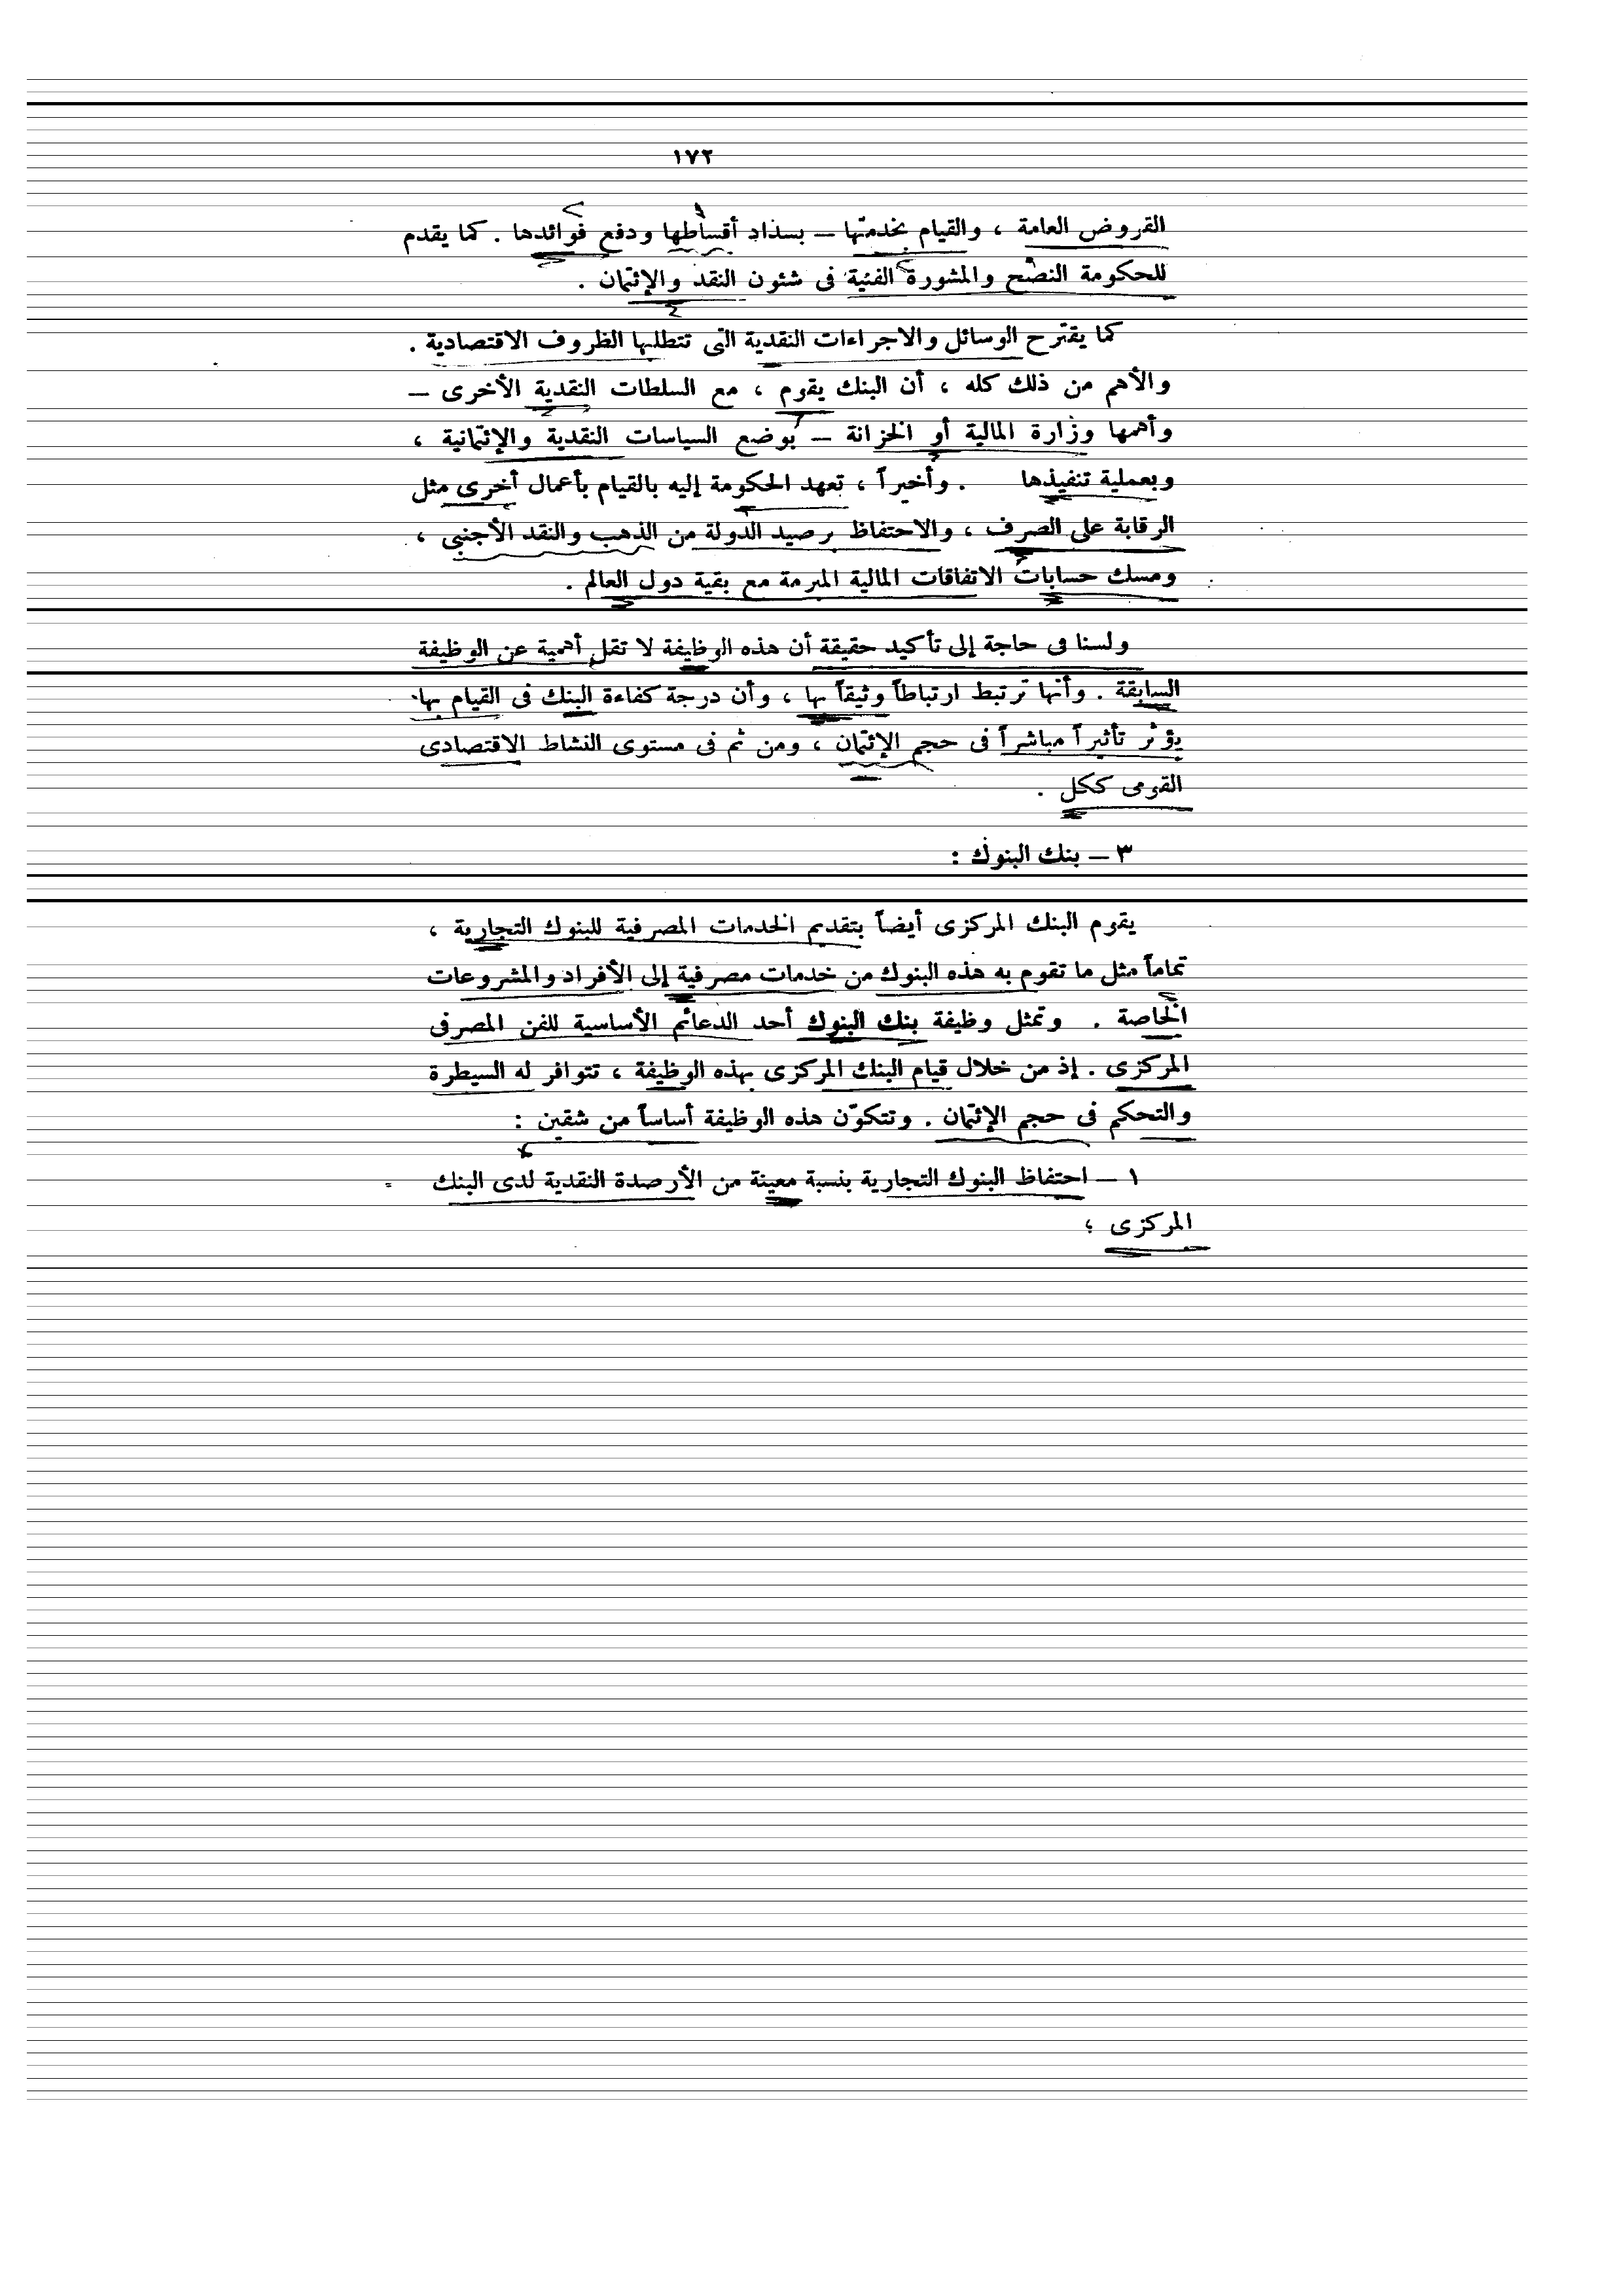 ١٧٢
القروض العامة ، والقيام بخدمتها – بسداد أقساطها ودفع فوائدها . كما يقدم
للحكومة النصح والمشورة الفنية فى شئون النقد والإئتمان .
كما يقترح الوسائل والاجراءات النقدية التى تتطلبها الظروف الاقتصادية .
والأهم من ذلك كله ، أن البنك يقوم ، مع السلطات النقدية الأخرى –
وأهمها وزارة المالية أو الخزانة – بوضع السياسات النقدية والإئتمانية ،
وبعملية تنفيذها . وأخيراً ، تعهد الحكومة إليه بالقيام بأعمال أخرى مثل
الرقابة على الصرف ، والاحتفاظ برصيد الدولة من الذهب والنقد الأجنبى ،
ومسك حسابات الاتفاقات المالية المبرمة مع بقية دول العالم .
ولسنا فى حاجة إلى تأكيد حقيقة أن هذه الوظيفة لا تقل أهمية عن الوظيفة
السابقة . وأنها ترتبط ارتباطاً وثيقاً بها ، وأن درجة كفاءة البنك فى القيام بها
يؤثر تأثيراً مباشراً فى حجم الإئتمان ، ومن ثم فى مستوى النشاط الاقتصادى
القومى ككل .
٣ – بنك البنوك :
يقوم البنك المركزى أيضاً بتقديم الخدمات المصرفية للبنوك التجارية ،
تماماً مثل ما تقوم به هذه البنوك من خدمات مصرفية إلى الأفراد والمشروعات
الخاصة . وتمثل وظيفة بنك البنوك أحد الدعائم الأساسية للفن المصرفى
المركزى . إذ من خلال قيام البنك المركزى بهذه الوظيفة ، تتوافر له السيطرة
والتحكم فى حجم الإئتمان . وتتكوّن هذه الوظيفة أساساً من شقين :
١ – احتفاظ البنوك التجارية بنسبة معينة من الأرصدة النقدية لدى البنك
المركزى ؛